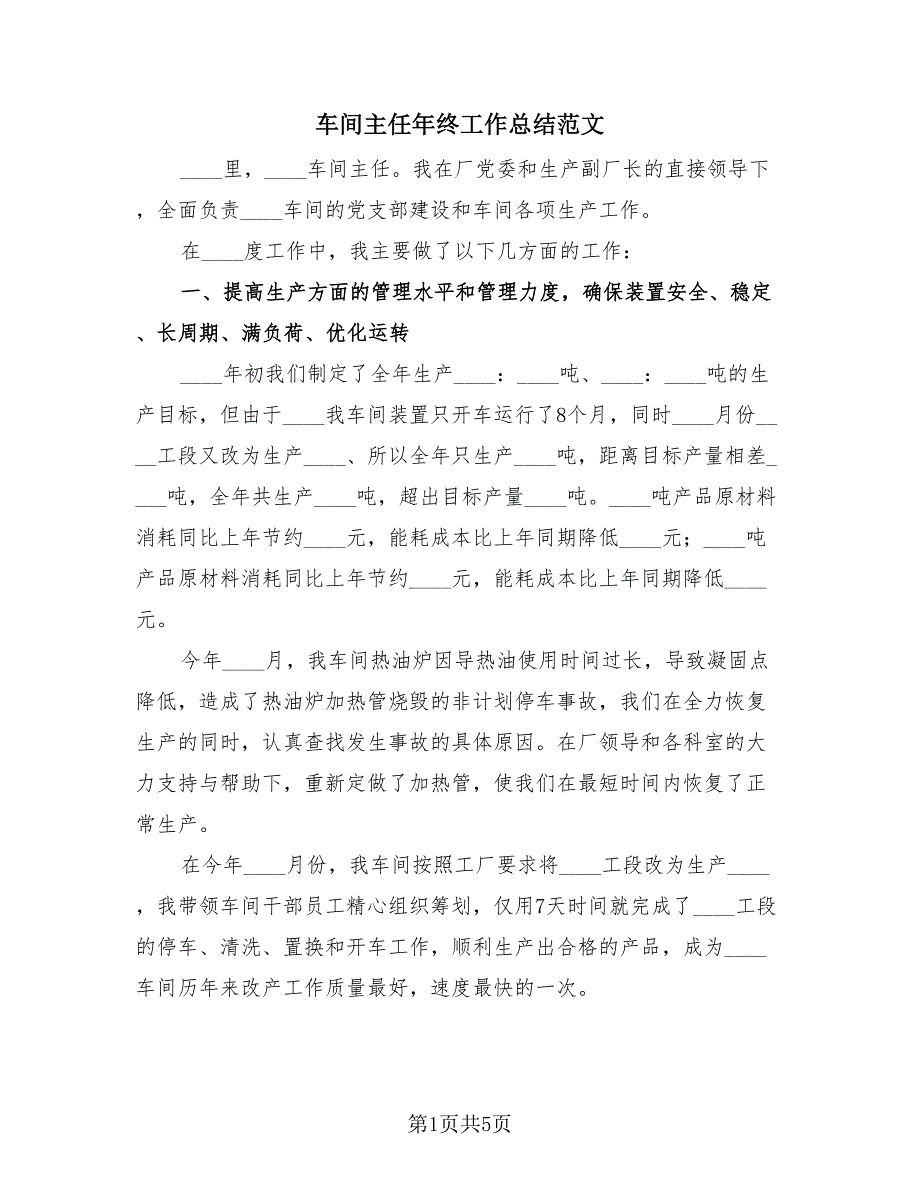 车间主任年终工作总结范文
____里，____车间主任。我在厂党委和生产副厂长的直接领导下
，全面负责____车间的党支部建设和车间各项生产工作。
在____度工作中，我主要做了以下几方面的工作：
一、提高生产方面的管理水平和管理力度，确保装置安全、稳定
、长周期、满负荷、优化运转
____年初我们制定了全年生产____：____吨、____：____吨的生
产目标，但由于____我车间装置只开车运行了8个月，同时____月份__
__工段又改为生产____、所以全年只生产____吨，距离目标产量相差_
___吨，全年共生产____吨，超出目标产量____吨。____吨产品原材料
消耗同比上年节约____元，能耗成本比上年同期降低____元；____吨
产品原材料消耗同比上年节约____元，能耗成本比上年同期降低____
元。
今年____月，我车间热油炉因导热油使用时间过长，导致凝固点
降低，造成了热油炉加热管烧毁的非计划停车事故，我们在全力恢复
生产的同时，认真查找发生事故的具体原因。在厂领导和各科室的大
力支持与帮助下，重新定做了加热管，使我们在最短时间内恢复了正
常生产。
在今年____月份，我车间按照工厂要求将____工段改为生产____
，我带领车间干部员工精心组织筹划，仅用7天时间就完成了____工段
的停车、清洗、置换和开车工作，顺利生产出合格的产品，成为____
车间历年来改产工作质量最好，速度最快的一次。
第1页共5页